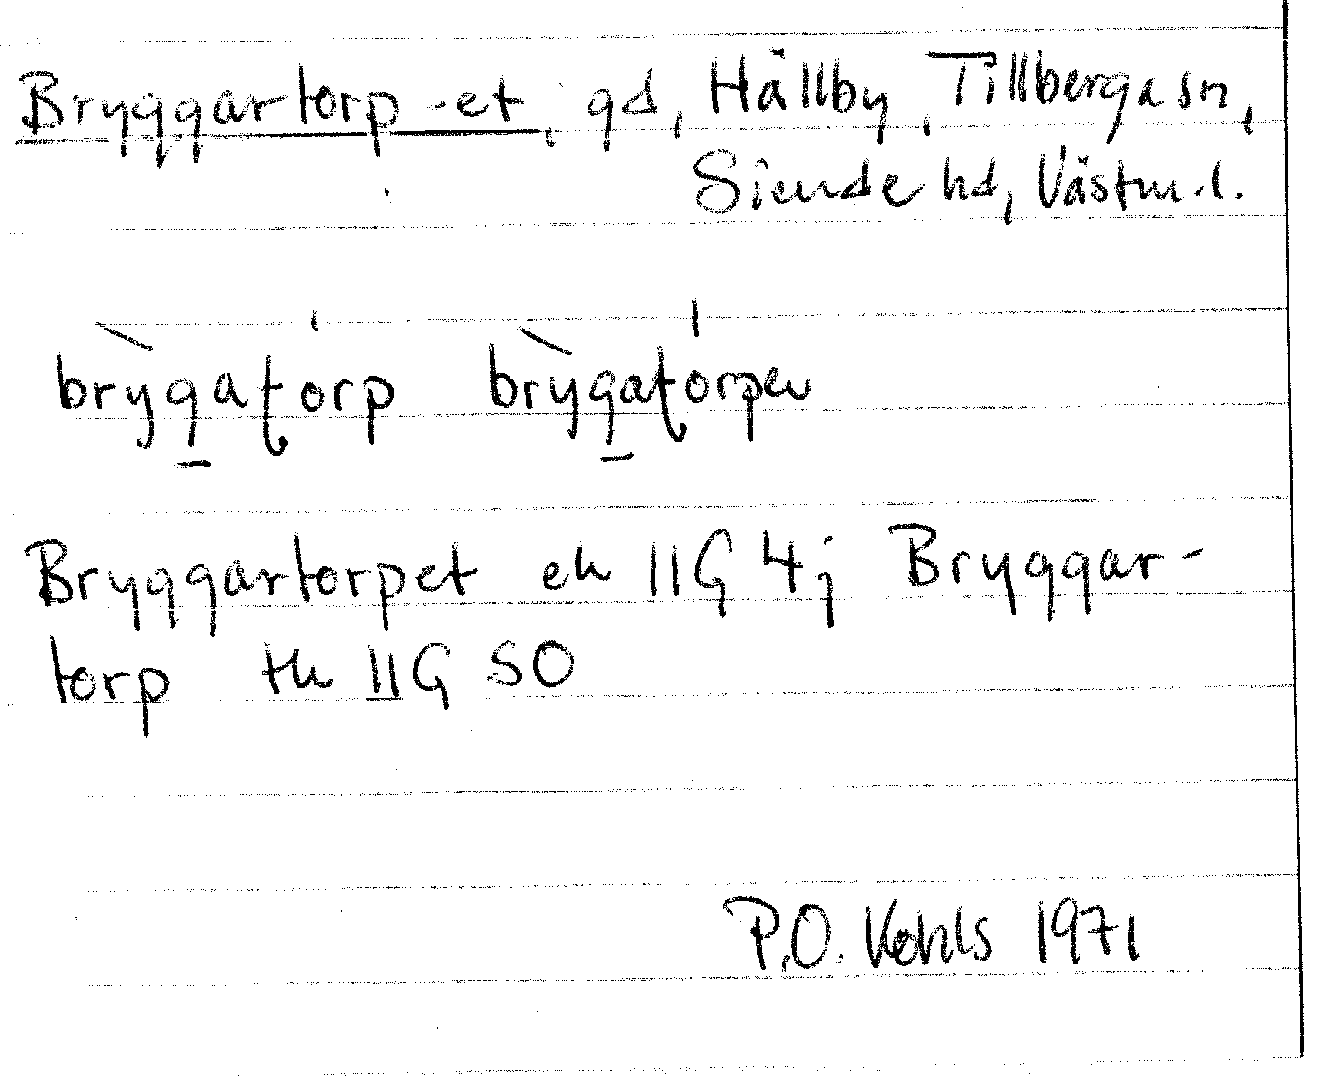 Bryggartorp -et, gd, Hällby, Tillberga sn,
Siende hd, Västm.l.
brỳgaʈórp brỳgaʈórpeu
Bryggartorpet ek 11G 4j Bryggar-
torp tk 11G SO
P.O. Kohls 1971